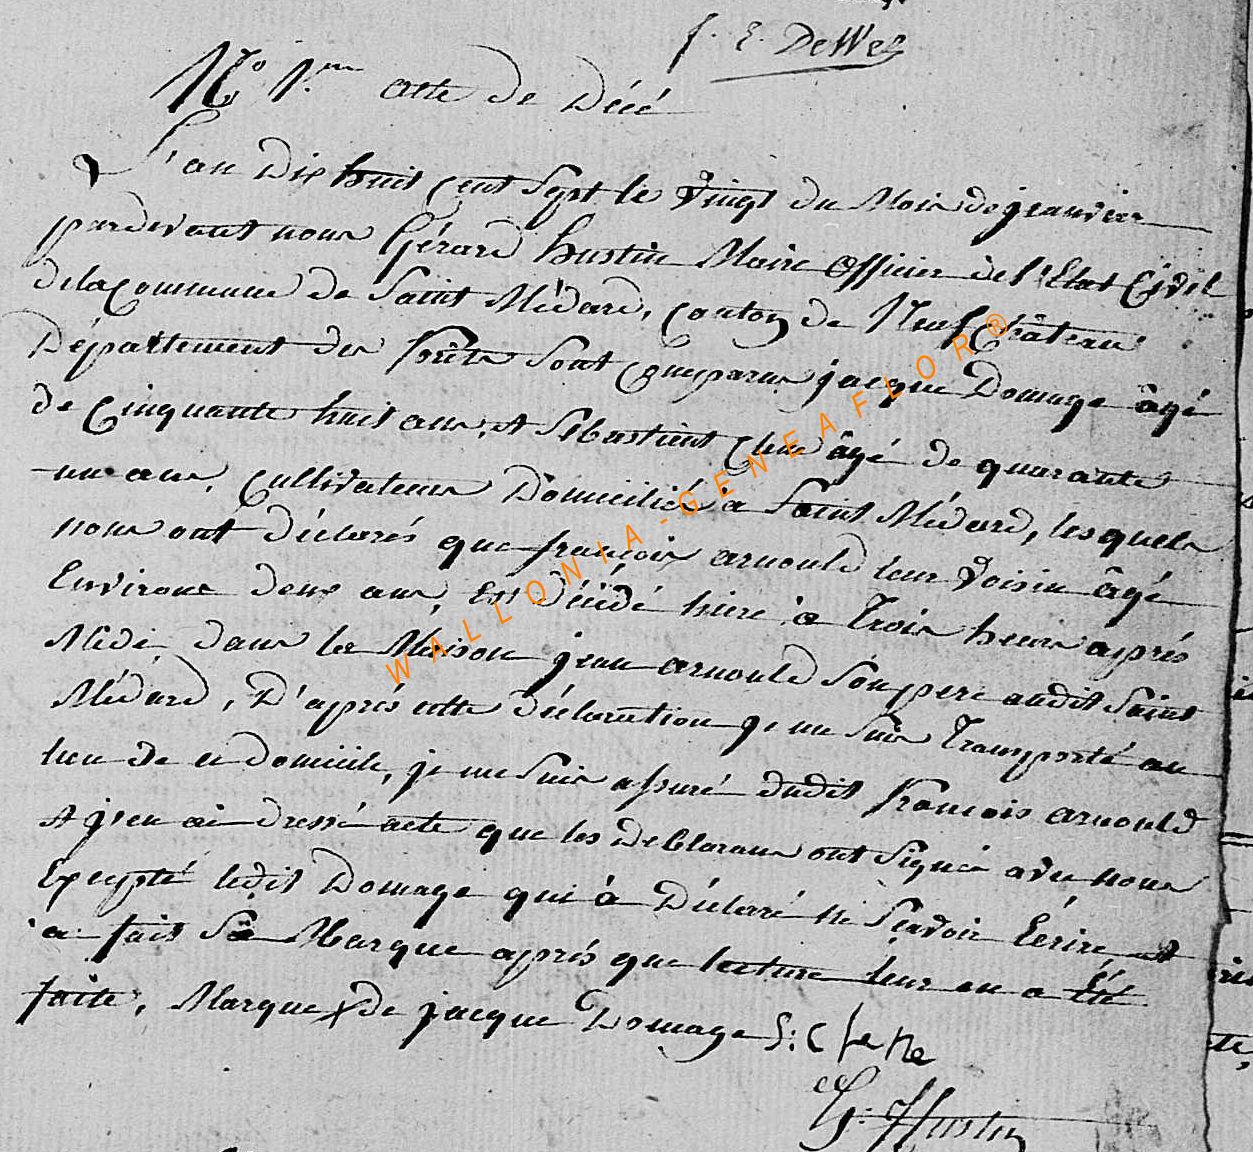 f. E. DeWez
N.° 1.er Acte de Décé
L'an Dix huit cent Sept le Vingt du Mois de janvier
pardevant nous Gérard Hustin Maire Officier de l'Etat Civil
dela Commune de Saint Médard, Canton de Neufchâteau
Département des forêts Sont Comparus jacque Domage âgé
de Cinquante huit ans, et Sébastient Clene âgé de quarante
un ans, Cultivateurs Domiciliés à Saint Médard, lesquels
nous ont déclarés que françois arnould leur Voisin âgé
Environt deux ans, Est Décédé hiere à Trois heurs après
Midi dans la Maison jean arnould Son pere audit Saint
Médard, D'après cette Déclaration je me suis Transporté au
lieu de ce domicile, je me suis assuré dudit francois arnould
et j'en ai dressé acte que les Déclarans ont Signés avec nous
Excepté ledit Domage qui à Déclaré ne Scavoir Ecrire, et
a fait Sa Marque après que lecture leur en a Eté
faite, Marque X de jacque Domage S: Clene
G. Hustin
WALLONIA-GENEAFLOR®